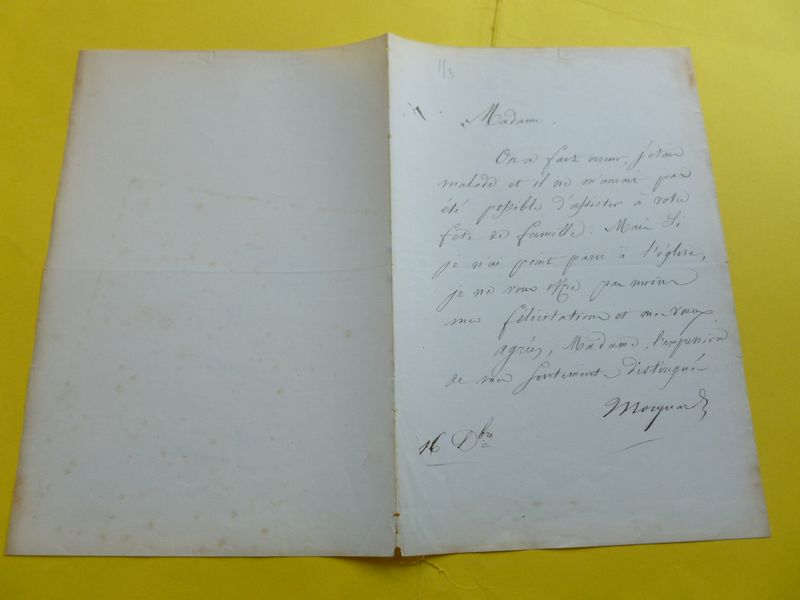 1/3
Madame.
On a fait erreur, j'étais
malade et il ne m'aurait pas
été possible d'assister à votre
fête de famille. Mais si
je n'ai point paru à l'église,
je ne vous offre pas moins
mes félicitations et mes vœux.
agréez, Madame, l'expression
de mes sentiments distingués
Mocquard
16 Dbre